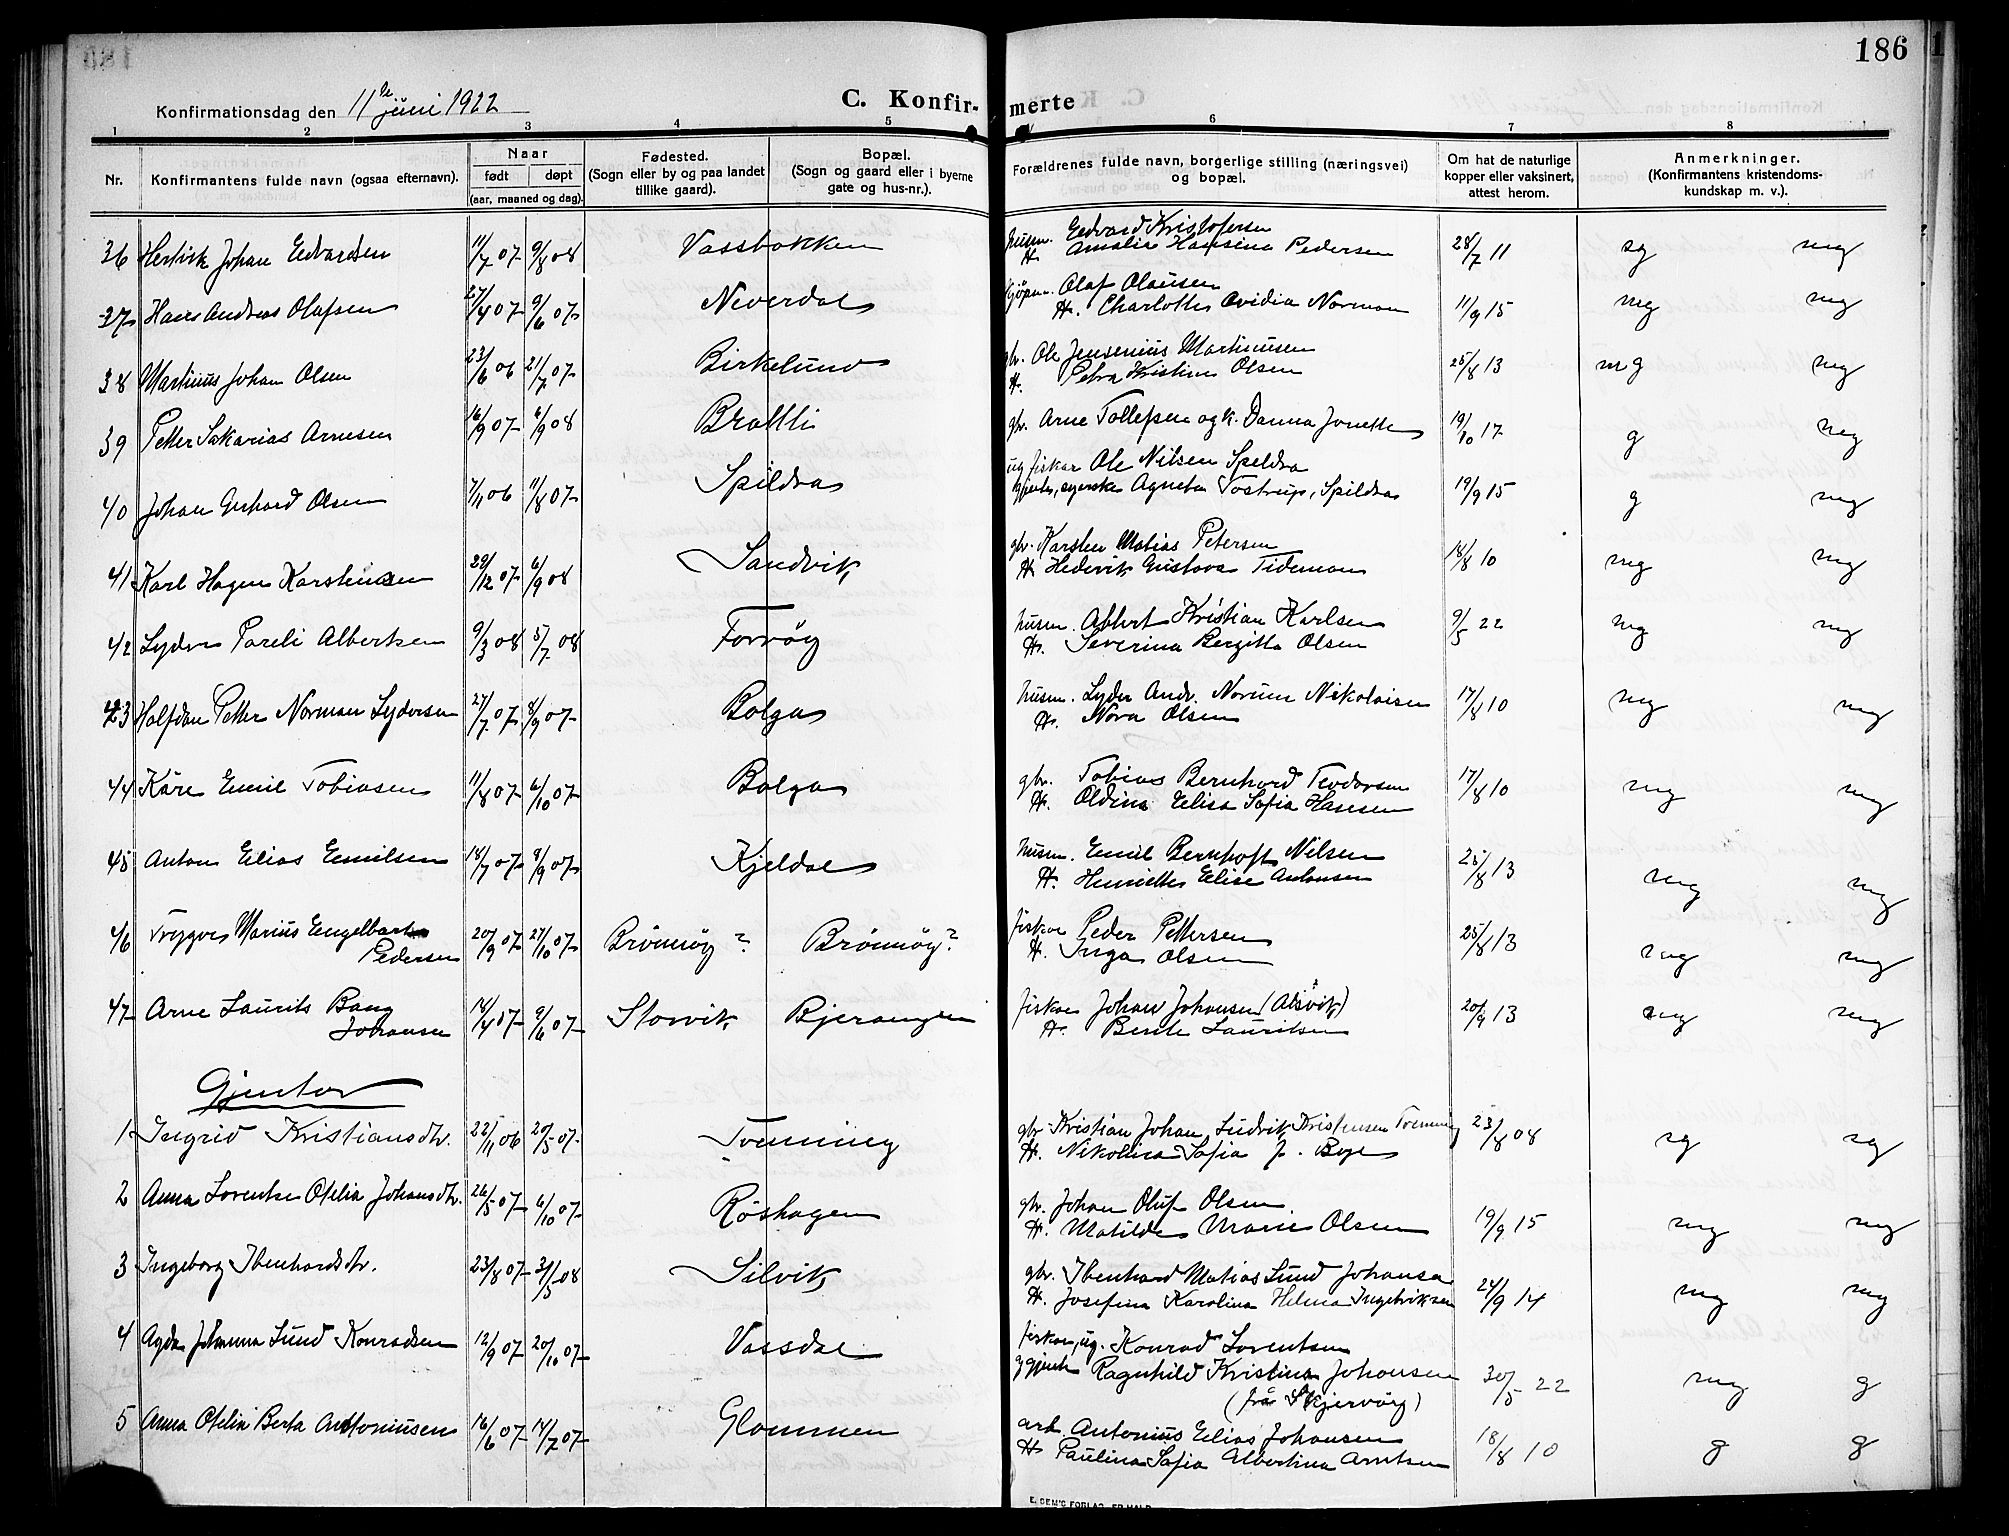 186
Konfirmationsdag den 11te juni 1922
C. Konfir-merte
1 2 3 4 5 6 7 8
Nr.
Konfirmantens fulde navn (ogsaa efternavn).
Naar
født døpt
(aar, maaned og dag).
Fødested.
(Sogn eller by og paa landet
tillike gaard).
Bopæl.
(Sogn og gaard eller i byerne
gate og hus-nr.).
Forældrenes fulde navn, borgerlige stilling (næringsvei)
og bopæl.
Om hat de naturlige
kopper eller vaksinert,
attest herom.
Anmerkninger.
(Konfirmantens kristendoms-
kundskap m. v.).
36 Johan Edvardsen 11/7 07 9/8 08 Vassbakken husm. Edvard Kristofersen 28/7 11 sg mg
H. Amalie Hansina Pedersen
37 Hans Andreas Olafsen 27/4 07 9/6 07 Neverdal kjøpm. Olaf Olausen 11/9 15 mg mg
H. Charlotte Ovidia Norman
38 Martinus Johan Olsen 23/6 06 21/7 07 Birkelund gbr. Ole Jensenius Martinusen 25/8 13 mg mg
H. Petra Kristine Olsen
39 Petter Sakarias Arnesen 16/9 07 6/9 08 Bratli gbr. Arne Tollefsen og k. Danna Jonette 19/10 17 g mg
40 Johan Gerhard Olsen 7/11 06 11/8 07 Spildra ug fisker Ole Nilsen Speldra 19/9 15 g mg
Agneta Tostrup, Spildra
41 Karl Hagen Karstensen 29/12 07 6/9 08 Sandvik gbr. Karsten Matias Petersen 18/8 10 mg mg
H. Hedevik Gustava Tideman
42 Lyder Pareli Albertsen 9/3 08 5/7 08 Forrøy husm. Albert Kristian Karlsen 9/5 22 mg mg
H. Severina Bergitta Olsen
43 Halfdan Petter Norman Lydersen 27/7 07 8/9 07 Bolga husm. Lyder Andr. Norum Nikolaisen 17/8 10 mg mg
H. Nora Olsen
44 Kåre Emil Tobiasen 11/8 07 6/10 07 Bolga gbr. Tobias Bernhard Teodorsen 17/8 10 mg mg
H. Oldina Elisa Sofia Hansen
45 Anton Elias Emilsen 18/7 07 9/9 07 Kjeldal husm. Emil Bernhoft Nilsen 25/8 13 mg mg
H. Henriette Elise Antonsen
46 Trygve Marius Engelbart 20/9 07 27/10 07 Brønnøy? Brønnøy? fisker Peder Pettersen 25/8 13 mg mg
Pedersen H. Inga Olsen
47 Arne Laurits Bang 14/4 07 9/6 07 Storvik Bjerangen fisker Johan Johansen (Alsvik) 20/9 13 mg mg
Johansen H. Bente Lauritsen
Gjenter
1 Ingrid Kristiansdtr. 22/11 06 20/5 07 Tonning gbr. Kristian Johan Ludvik Kristensen Tonning 23/8 08 sg sg
H. Nikolina Sofia J. Boge
2 Anna Lorentse Otelia Johansdtr. 26/5 07 6/10 07 Røshagen gbr. Johan Oluf Olsen 19/9 15 mg mg
H. Matilde Marie Olsen
3 Ingeborg Ibenhardsdtr. 23/8 07 31/5 08 Silvik gbr. Ibenhard Matias Lund Johansen 24/9 14 mg mg
H. Josefina Karolina Helena Ingebriksen
4 Agda Johanna Lund Konradsen 12/9 07 20/10 07 Vassdal fisker, ug. Konrad Lorentsen
gjente Ragnhild Kristina Johansen 30/5 22 mg g
(frå Skjervøy)
5 Anna Otelie Berta Antoniussen 16/6 07 14/7 07 Glommen arb. Antonius Elias Johansen 18/8 10 g g
H. Paulina Sofia Albertina Arntsen